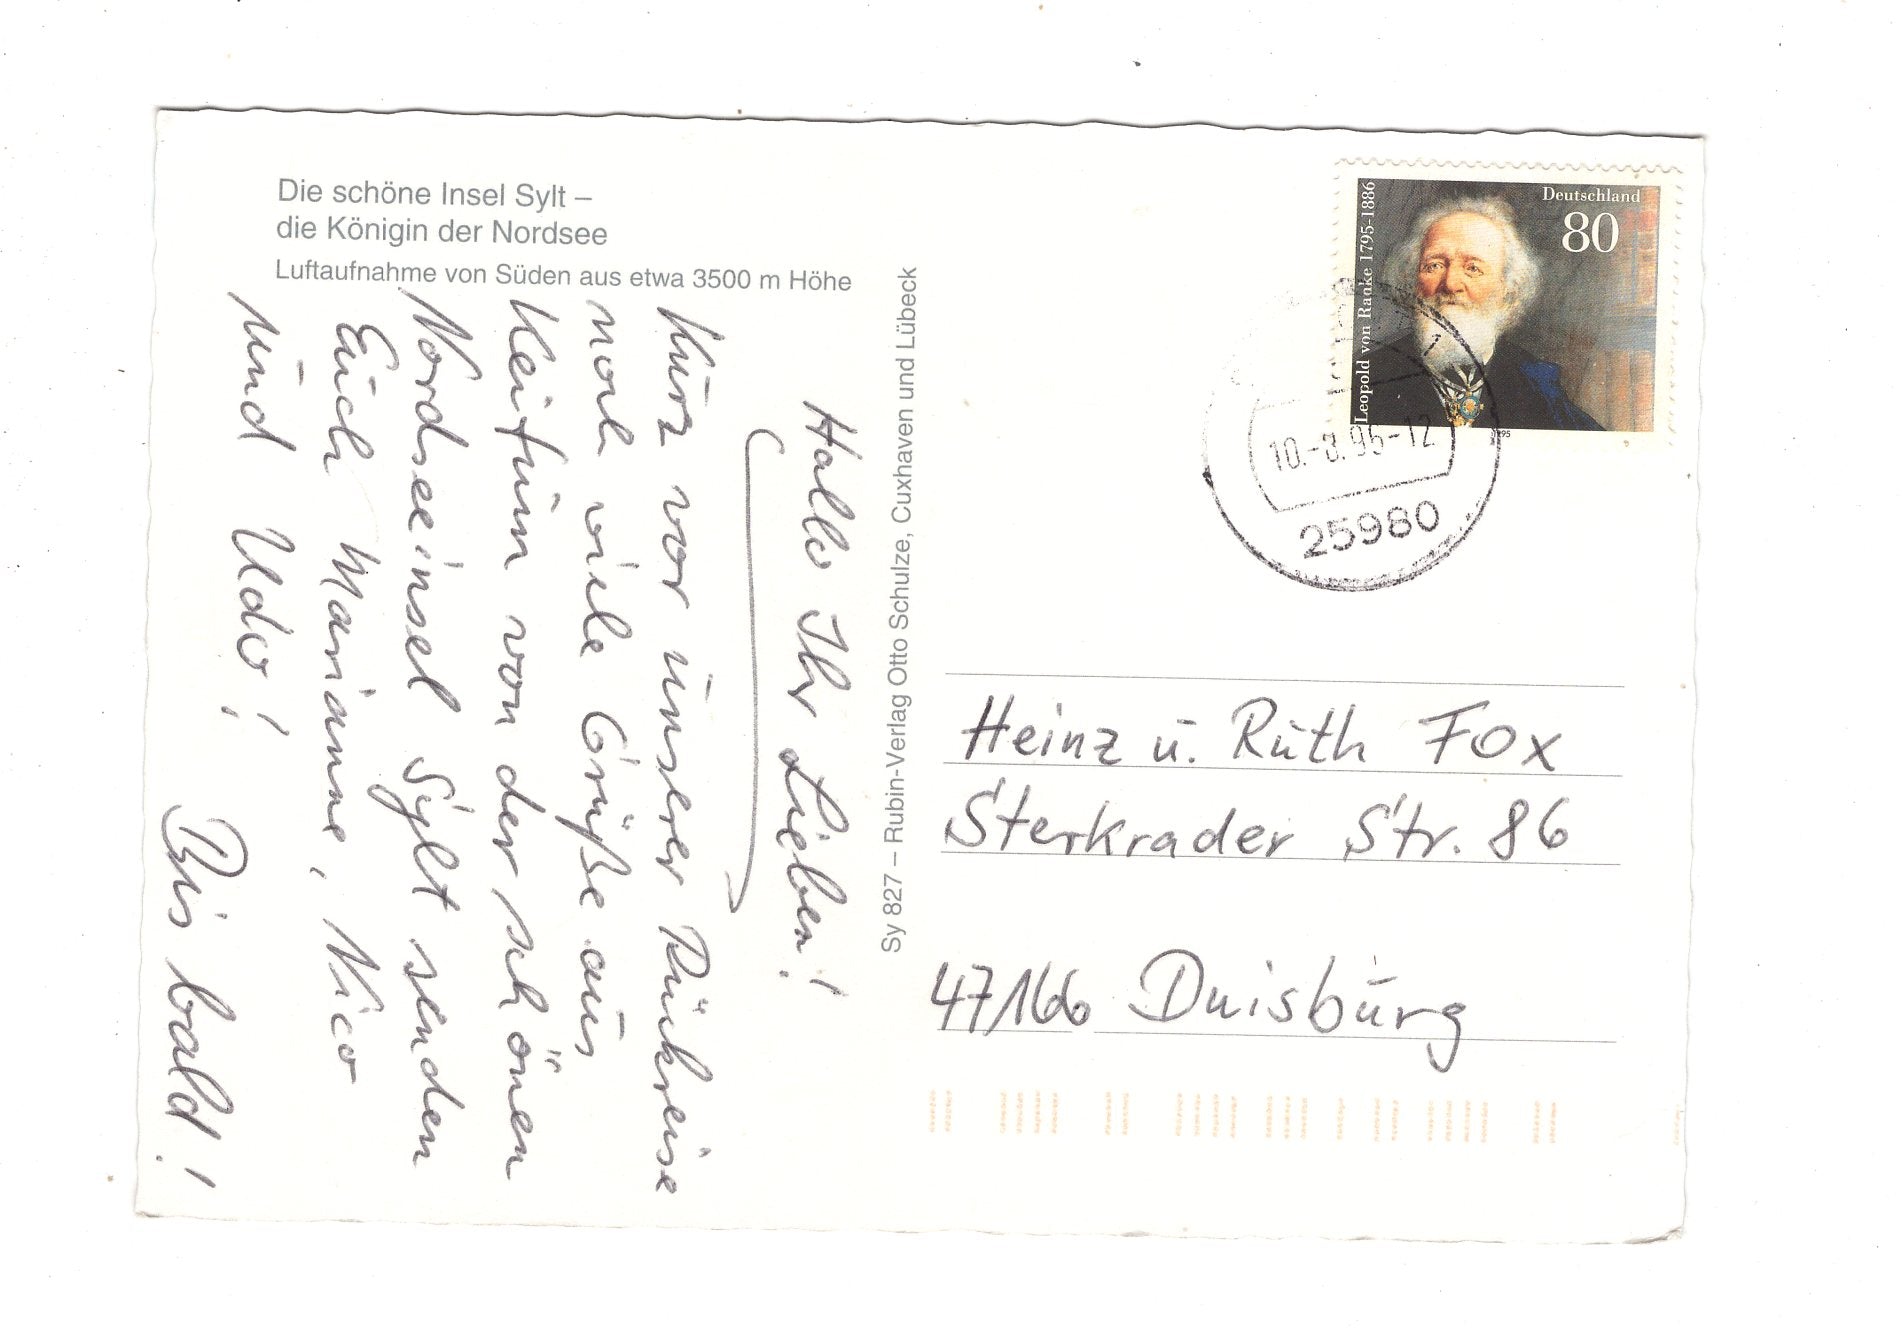 Die schöne Insel Sylt –
die Königin der Nordsee
Luftaufnahme von Süden aus etwa 3500 m Höhe
Hallo Ihr Lieben!
Kurz vor unserer Rückreise
noch viele Grüße aus
Keitum von der schönen
Nordseeinsel Sylt senden
Euch Marianne, Nico
und Udo!
Bis bald!
Sy 827 – Rubin-Verlag Otto Schulze, Cuxhaven und Lübeck
Deutschland
80
Leopold von Ranke 1795-1886
1995
10.-8.95-12
25980
Heinz u. Ruth Fox
Sterkrader Str. 86
47166 Duisburg